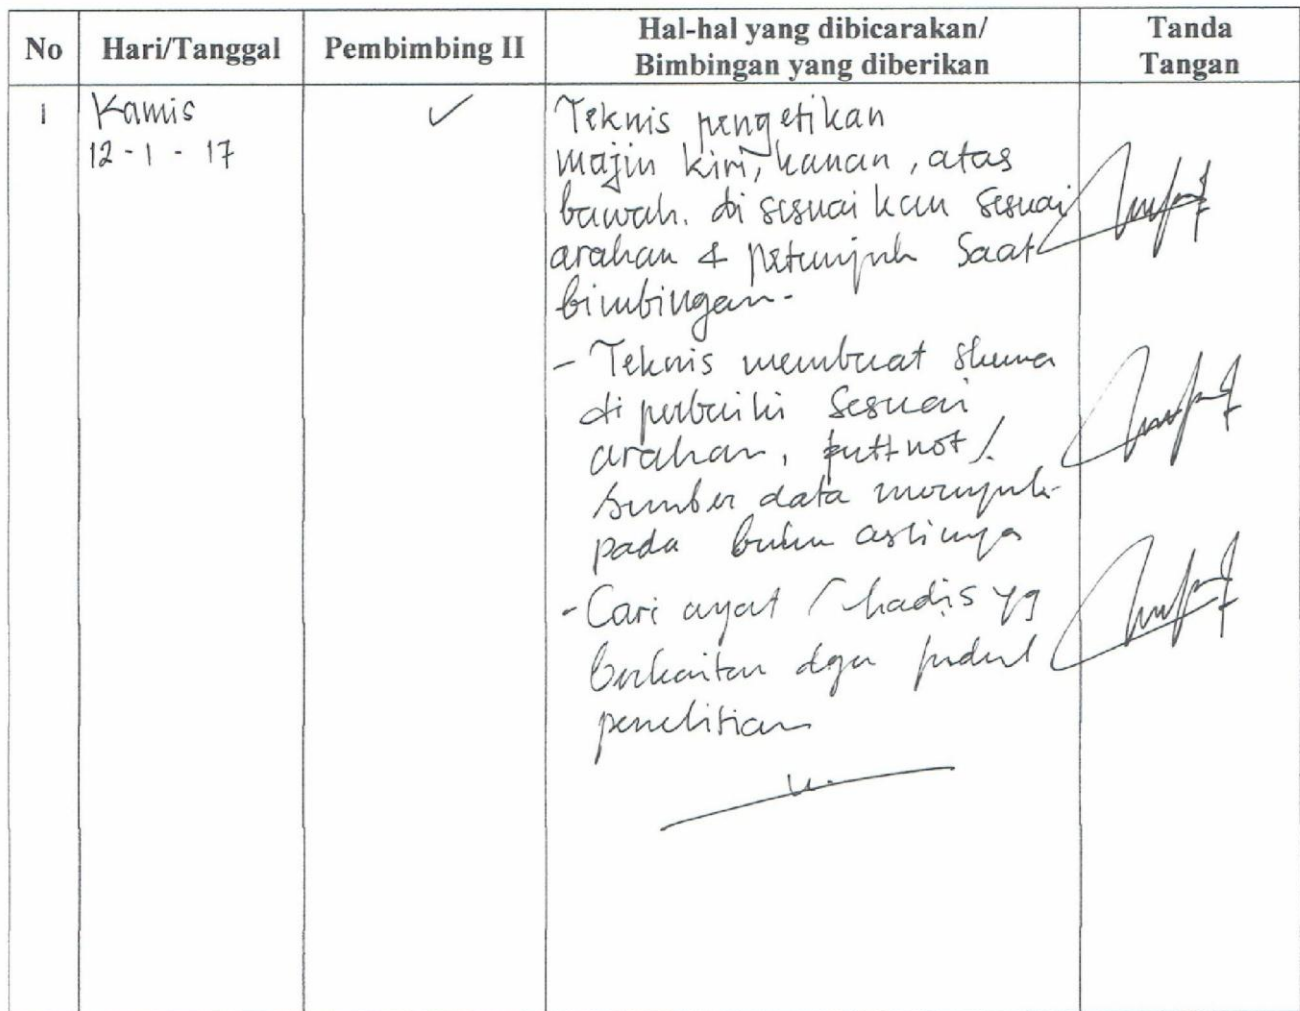 No Hari/Tanggal Pembimbing II Hal-hal yang dibicarakan/ Bimbingan yang diberikan Tanda Tangan
1 Kamis ✓ Teknis pengetikan
12 - 1 - 17 majin kiri, kanan, atas
bawah. di sesuai kan sesuai
arahan & petunjuk saat
bimbingan-
- Teknis membuat skema
di perbaiki sesuai
arahan, futtnot /
sumber data merujuk
pada buku aslinya
- Cari ayat / hadis yg
berkaitan dgn judul
penelitian